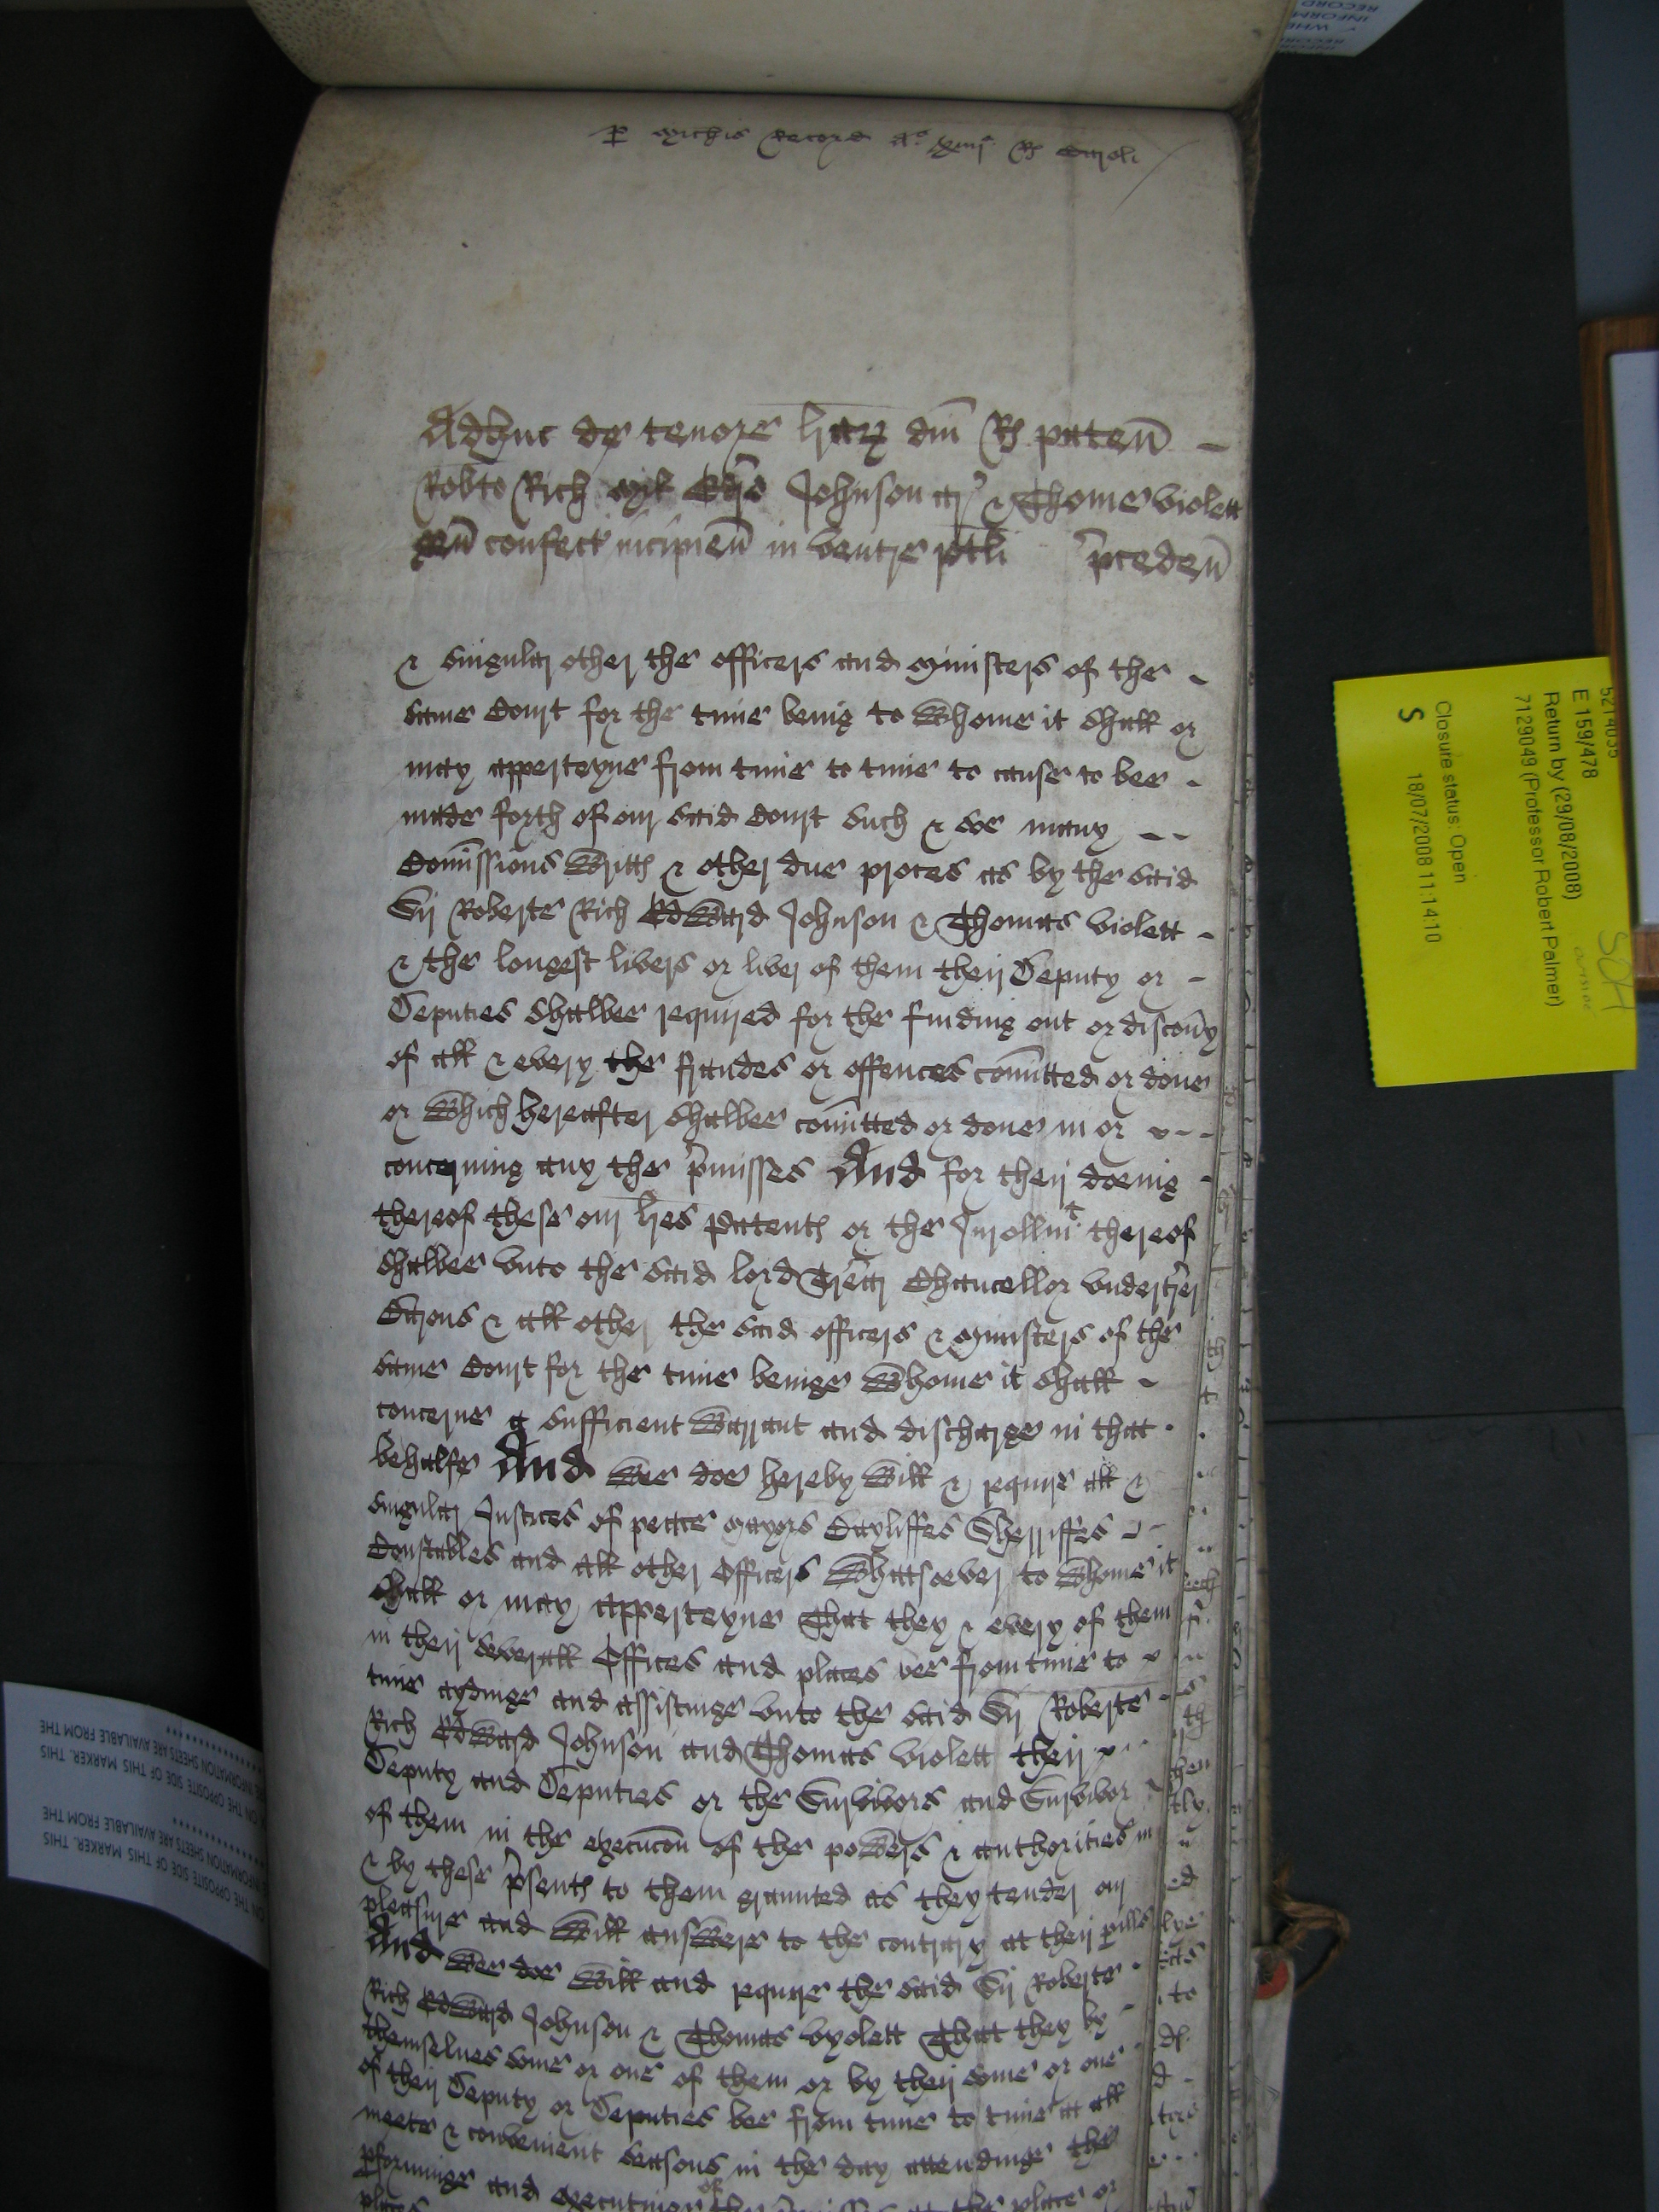 p Michis Record Ao xiiij R Caroli
Adhuc de tenore lrarz dni R paten
Robto Rich Mil Edro Johnson ar & Thome Violett
gen confect incipien in ventre rotli pceden
& singular other the officers and Ministers of the
same Court for the time being to Whome it shall or
may apperteyne from time to time to cause to bee
made forth of our said Court such & soe many
Comissions Writts & other due proces as by the said
Sir Roberte Rich Edward Johnson & Thomas Violett
& the longest livers or liver of them their Deputy or
Deputies shalbee required for the finding out or discovy
of all & every the fraudes or offences comitted or done
or Which hereafter shalbee comitted or done in or
concerning any the pmisses And for their doeing
thereof these our lres Patents or the Inrollmt thereof
shalbee vnto the said lord Trear Chancellor vndertrer
Barons & all other the said officers & Ministers of the
same Court for the time beinge Whome it shall
concerne a sufficient Warrant and discharge in that
behalfe And Wee doe hereby Will & require all &
singular Justices of peace Mayors Bayliffes Sherriffes
Constables and all other Officers Whatsoever to Whome it
shall or may apperteyne That they & every of them
in their severall Offices and places bee from time to
time aydinge and assistinge vnto the said Sir Roberte
Rich Edward Johnson and Thomas Violett their
Deputy and Deputies or the Survivors and Survivor
of them in the execucon of the powers & authorities in
& by these psents to them graunted as they tender our
pleasure and Will answere to the contrary at their pills
And Wee doe Will and require the said Sir Roberte
Rich Edward Johnson & Thomas Vyolett That they by
themselues some or one of them or by their some or one
of their Deputy or Deputies bee from time to time at all
meete & convenient seasons in the day attendinge the
pforminge and executinge of the place or
places
5214035
E 159/478
Return by (29/08/2008)
7129049 (Professor Robert Palmer)
Closure status: Open
18/07/2008 11:14:10
S
ON THE OPPOSITE SIDE OF THIS MARKER. THIS
INFORMATION SHEETS ARE AVAILABLE FROM THE
ON THE OPPOSITE SIDE OF THIS MARKER. THIS
INFORMATION SHEETS ARE AVAILABLE FROM THE